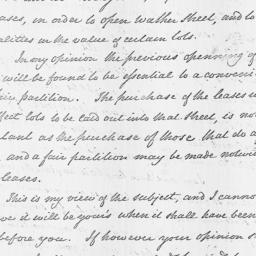 ases, in order to open Walker Street, and to
alities in the value of certain lots.
In my opinion the previous openning of
will be found to be essential to a conveni
fair partition. The purchase of the leases w
ffect lots to be laid out into that Street, is no
tant as the purchase of those that do a
and a fair partition may be made notwi
leases.
This is my view of the subject, and I canno
ve it will be yours when it shall have been
before you. If however your opinion s